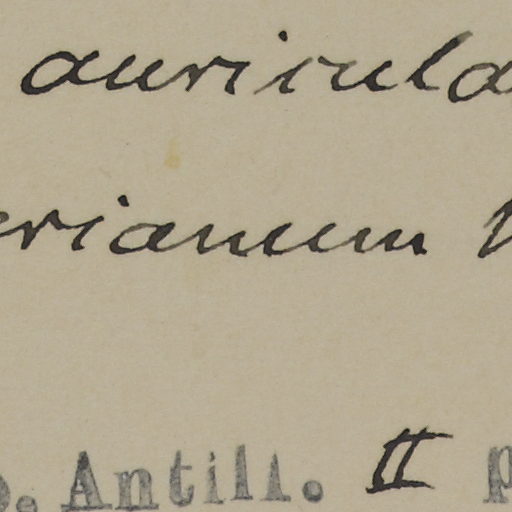 auricula
erianum
. Antill. II p